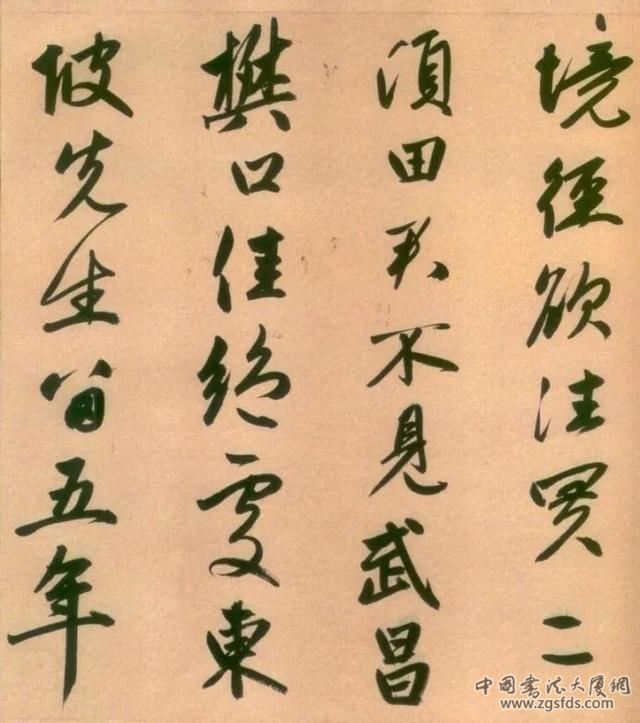 境徑欲往買二
頃田君不見武昌
樊口佳絕處東
坡先生留五年
中國書法大廈網
www.zgsfds.com